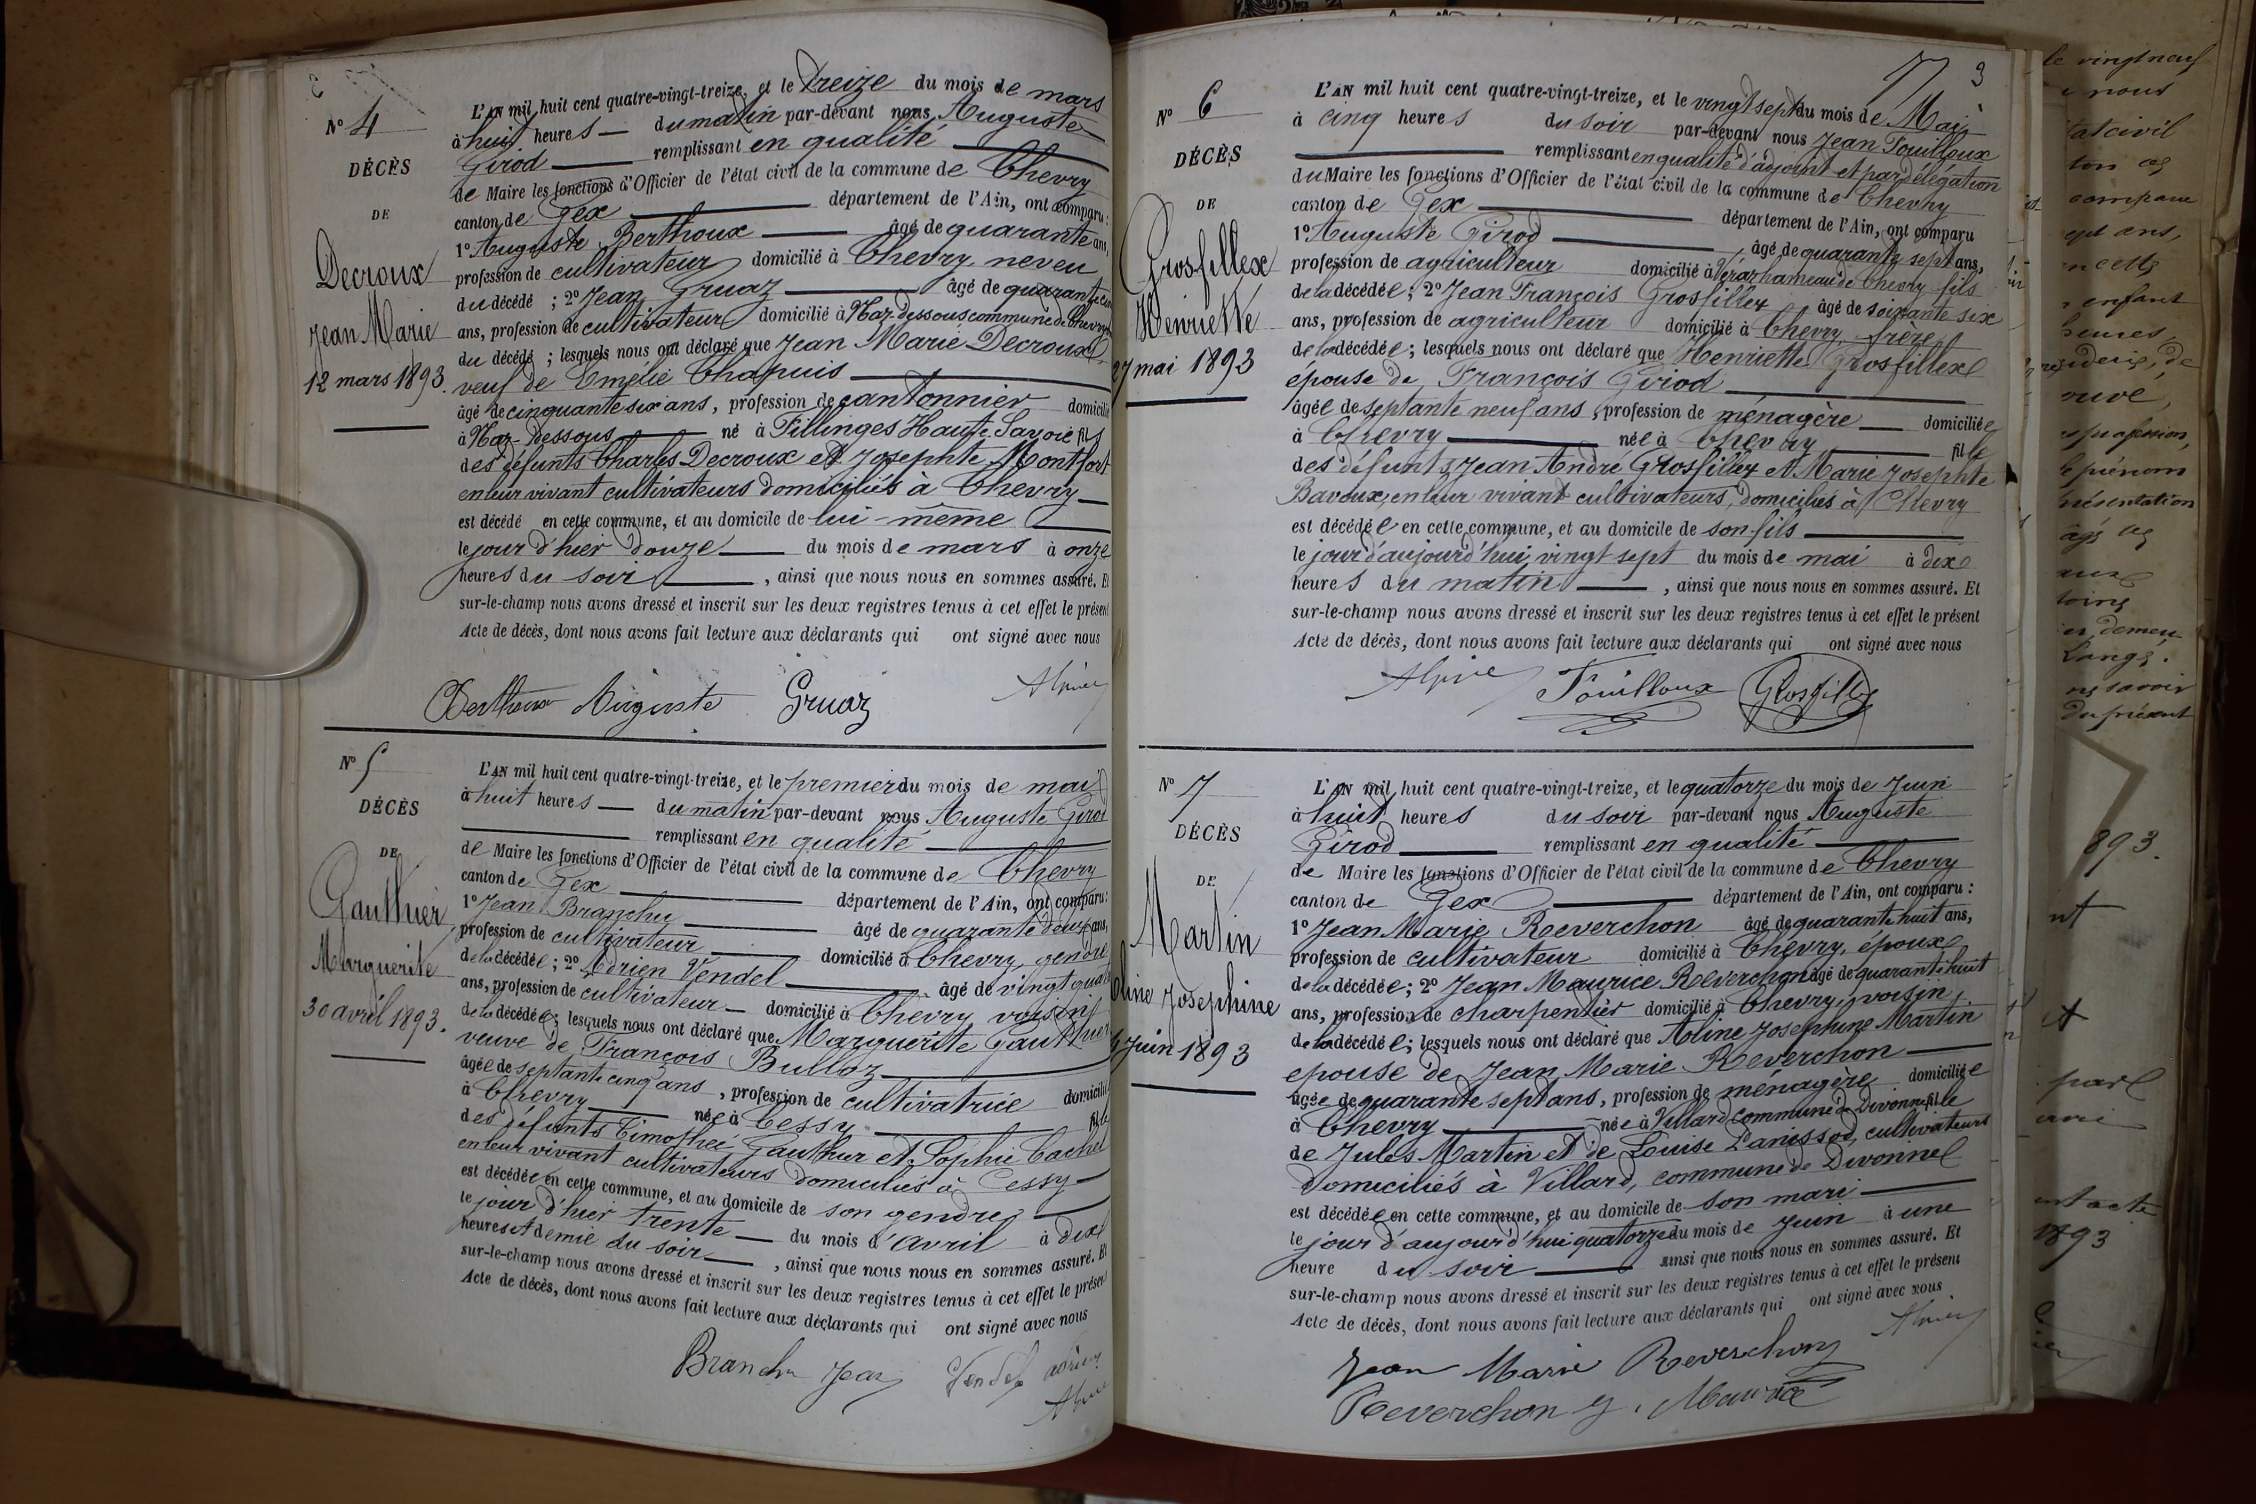 Nº 4
DÉCÈS
DE
Decroux
Jean Marie
12 mars 1893.
L'AN mil huit cent quatre-vingt-treize, et le treize du mois de mars
à huit heures du matin par-devant nous Auguste
Girod remplissant en qualité
de Maire les fonctions d'Officier de l'état civil de la commune de Chevry
canton de Gex département de l'Ain, ont comparu :
1º Auguste Berthoux âgé de quarante ans,
profession de cultivateur domicilié à Chevry, neveu
du décédé ; 2º Jean Gruaz âgé de quarante
ans, profession de cultivateur domicilié à Naz-dessous commune de Chevry
du décédé ; lesquels nous ont déclaré que Jean Marie Decroux
veuf de Emélie Chapuis
âgé de cinquante six ans, profession de cantonnier domicilié
à Naz-Dessous né à Fillinges Haute-Savoie fils
des défunts Charles Decroux et Josephte Montfort
en leur vivant cultivateurs domiciliés à Chevry
est décédé en cette commune, et au domicile de lui-même
le jour d'hier douze du mois de mars à onze
heures du soir, ainsi que nous nous en sommes assuré. Et
sur-le-champ nous avons dressé et inscrit sur les deux registres tenus à cet effet le présent
Acte de décès, dont nous avons fait lecture aux déclarants qui ont signé avec nous
Berthoux Auguste Gruaz
Nº 5
DÉCÈS
DE
Gauthier
Marguerite
30 avril 1893.
L'AN mil huit cent quatre-vingt-treize, et le premier du mois de mai
à huit heures du matin par-devant nous Auguste Girod
remplissant en qualité
de Maire les fonctions d'Officier de l'état civil de la commune de Chevry
canton de Gex département de l'Ain, ont comparu :
1º Jean Branchu âgé de quarante deux ans,
profession de cultivateur domicilié à Chevry, gendre
de la décédée ; 2º Adrien Vendel âgé de vingt quatre
ans, profession de cultivateur domicilié à Chevry voisin
de la décédée ; lesquels nous ont déclaré que Marguerite Gauthier
veuve de François Bulloz
âgée de septante cinq ans, profession de cultivatrice domiciliée
à Chevry née à Cessy fille
des défunts Timothée Gauthier et Sophie Cachet
en leur vivant cultivateurs domiciliés à Cessy
est décédée en cette commune, et au domicile de son gendre
le jour d'hier trente du mois d'avril à dix
heures et demie du soir, ainsi que nous nous en sommes assuré. Et
sur-le-champ nous avons dressé et inscrit sur les deux registres tenus à cet effet le présent
Acte de décès, dont nous avons fait lecture aux déclarants qui ont signé avec nous
Branchu Jean Vendel adrien
3
Nº 6
DÉCÈS
DE
Grosfillex
Henriette
27 mai 1893
L'AN mil huit cent quatre-vingt-treize, et le vingt sept du mois de Mai
à cinq heures du soir par-devant nous Jean Fouilloux
remplissant en qualité d'adjoint et par délégation
du Maire les fonctions d'Officier de l'état civil de la commune de Chevry
canton de Gex département de l'Ain, ont comparu
1º Auguste Girod âgé de quarante sept ans,
profession de agriculteur domicilié à Véraz hameau de Chevry fils
de la décédée ; 2º Jean François Grosfillex âgé de soixante six
ans, profession de agriculteur domicilié à Chevry, frère
de la décédée ; lesquels nous ont déclaré que Henriette Grosfillex
épouse de François Girod
âgée de septante neuf ans, profession de ménagère domiciliée
à Chevry née à Chevry fille
des défunts Jean André Grosfillex et Marie Josephte
Bavoux, en leur vivant cultivateurs, domiciliés à Chevry
est décédée en cette commune, et au domicile de son fils
le jour d'aujourd'hui vingt sept du mois de mai à dix
heures du matin, ainsi que nous nous en sommes assuré. Et
sur-le-champ nous avons dressé et inscrit sur les deux registres tenus à cet effet le présent
Acte de décès, dont nous avons fait lecture aux déclarants qui ont signé avec nous
Fouilloux Grosfillex
Nº 7
DÉCÈS
DE
Martin
Josephine
Juin 1893
L'AN mil huit cent quatre-vingt-treize, et le quatorze du mois de Juin
à huit heures du soir par-devant nous Auguste
Girod remplissant en qualité
de Maire les fonctions d'Officier de l'état civil de la commune de Chevry
canton de Gex département de l'Ain, ont comparu :
1º Jean Marie Reverchon âgé de quarante huit ans,
profession de cultivateur domicilié à Chevry, époux
de la décédée ; 2º Jean Maurice Reverchon âgé de quarante huit
ans, profession de charpentier domicilié à Chevry, voisin
de la décédée ; lesquels nous ont déclaré que Aline Josephine Martin
epouse de Jean Marie Reverchon
âgée de quarante sept ans, profession de ménagère domiciliée
à Chevry née à Villard commune de Divonne fille
de Jules Martin et de Louise Panissod, cultivateurs
domiciliés à Villard, commune de Divonne
est décédée en cette commune, et au domicile de son mari
le jour d'aujourd'hui quatorze du mois de Juin à une
heure du soir ainsi que nous nous en sommes assuré. Et
sur-le-champ nous avons dressé et inscrit sur les deux registres tenus à cet effet le présent
Acte de décès, dont nous avons fait lecture aux déclarants qui ont signé avec nous
Jean Marie Reverchon
Reverchon J. Maurice
le vingt neuf
nous
état civil
ans,
enfant
heures
profession,
le prénom
présentation
demeu
savoir
du présent
893.
acte
1893